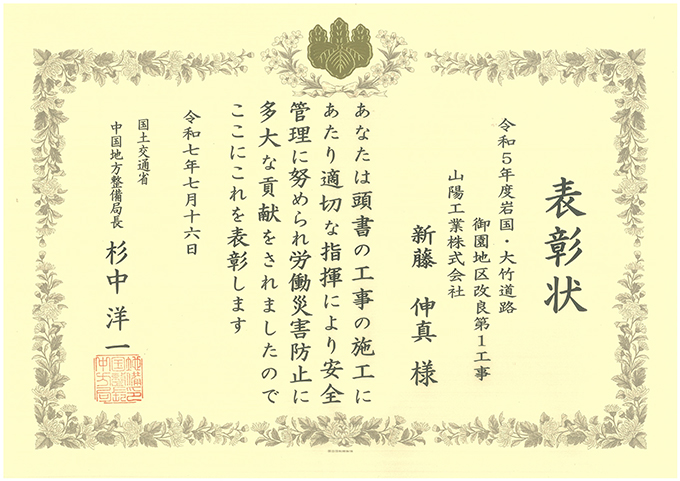 表彰状
令和5年度岩国・大竹道路
御園地区改良第1工事
山陽工業株式会社
新藤 伸真 様
あなたは頭書の工事の施工に
あたり適切な指揮により安全
管理に努められ労働災害防止に
多大な貢献をされましたので
ここにこれを表彰します
令和七年七月十六日
国土交通省
中国地方整備局長 杉中洋一